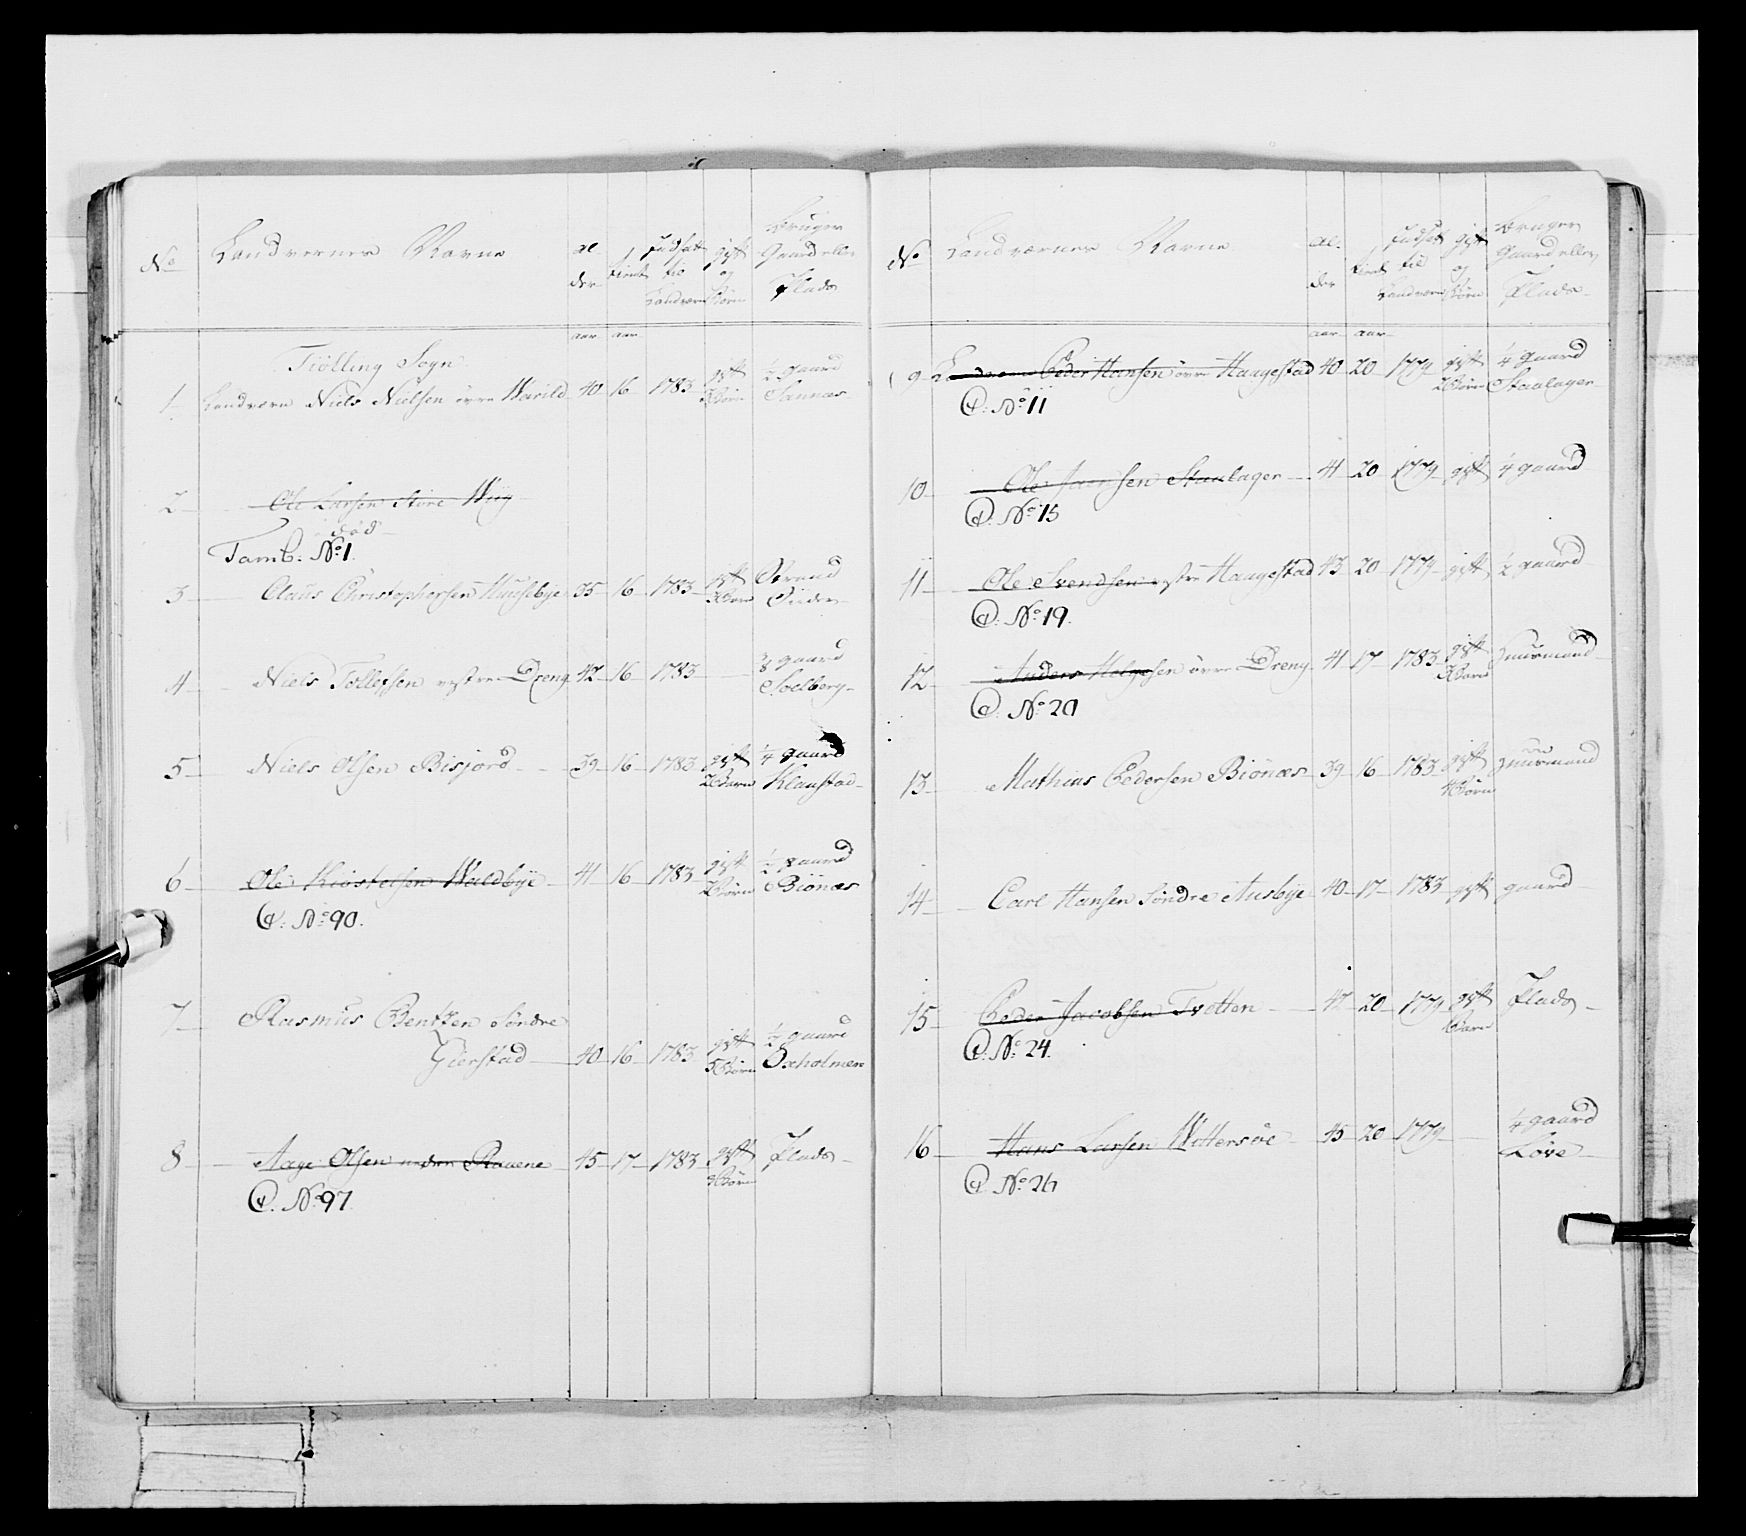 No Landvernes Navne Al- der tient Indsat til Landværn gift og Børn bruger Gaard eller Plads
aar aar
Tiølling Sogn
1. Landværn Niels Nielsen øvre Warild 40 16 1783 gift Børn ½ gaard Sannæs
2 Ole Larsen Store Wiig
død
Tamb: No 1.
3 Claus Christophersen Huusebye 35 16 1783 gift Børn
4 Niels Tollefsen vestre Dreng 42 16 1783 gaard Soelberg
5 Niels Olsen Bisjord 39 16 1783 gift 2 Børn ¼ gaard Klaastad
6 Ole Kiøstelsen Waldbye 41 16 1783 gift 2 Børn ½ gaard Biønnes
C: No 90.
7 Rasmus Bentzen Søndre
Gierstad 40 16 1783 gift 5 Børn ½ gaard Oxholmen
8 Aage Olsen neder Rauene 45 17 1783 gift Børn Plads
C. No 97.
No Landværnes Navne Al- der tient Indsat til Landværn gift og Børn bruger Gaard eller Plads
aar aar
9 Landværn Peder Hansen øvre Haugestad 40 20 1779 gift 2 Børn ¼ gaard Staalager
C: No 11
10 Ole Staalager 41 20 1779 gift ¼ gaard
C. No 15
11 Ole Svendsen vestre Haugestad 43 20 1779 gift ½ gaard
C: No 19.
12 Anders Helgesen øvre Dreng 41 17 1783 gift Børn Huusmand
C. No 20
13 Mathias Pedersen Biønæs 39 16 1783 gift Børn Huusmand
14 Carl Hansen Søndre Ausbye 40 17 1783 gift gaard
15 Peder Jacobsen Tvetten 42 20 1779 gift Barn Plads
C: No 24.
16 Hans Larsen Wittersøe 45 20 1779 ¼ gaard Løve
C. No 26